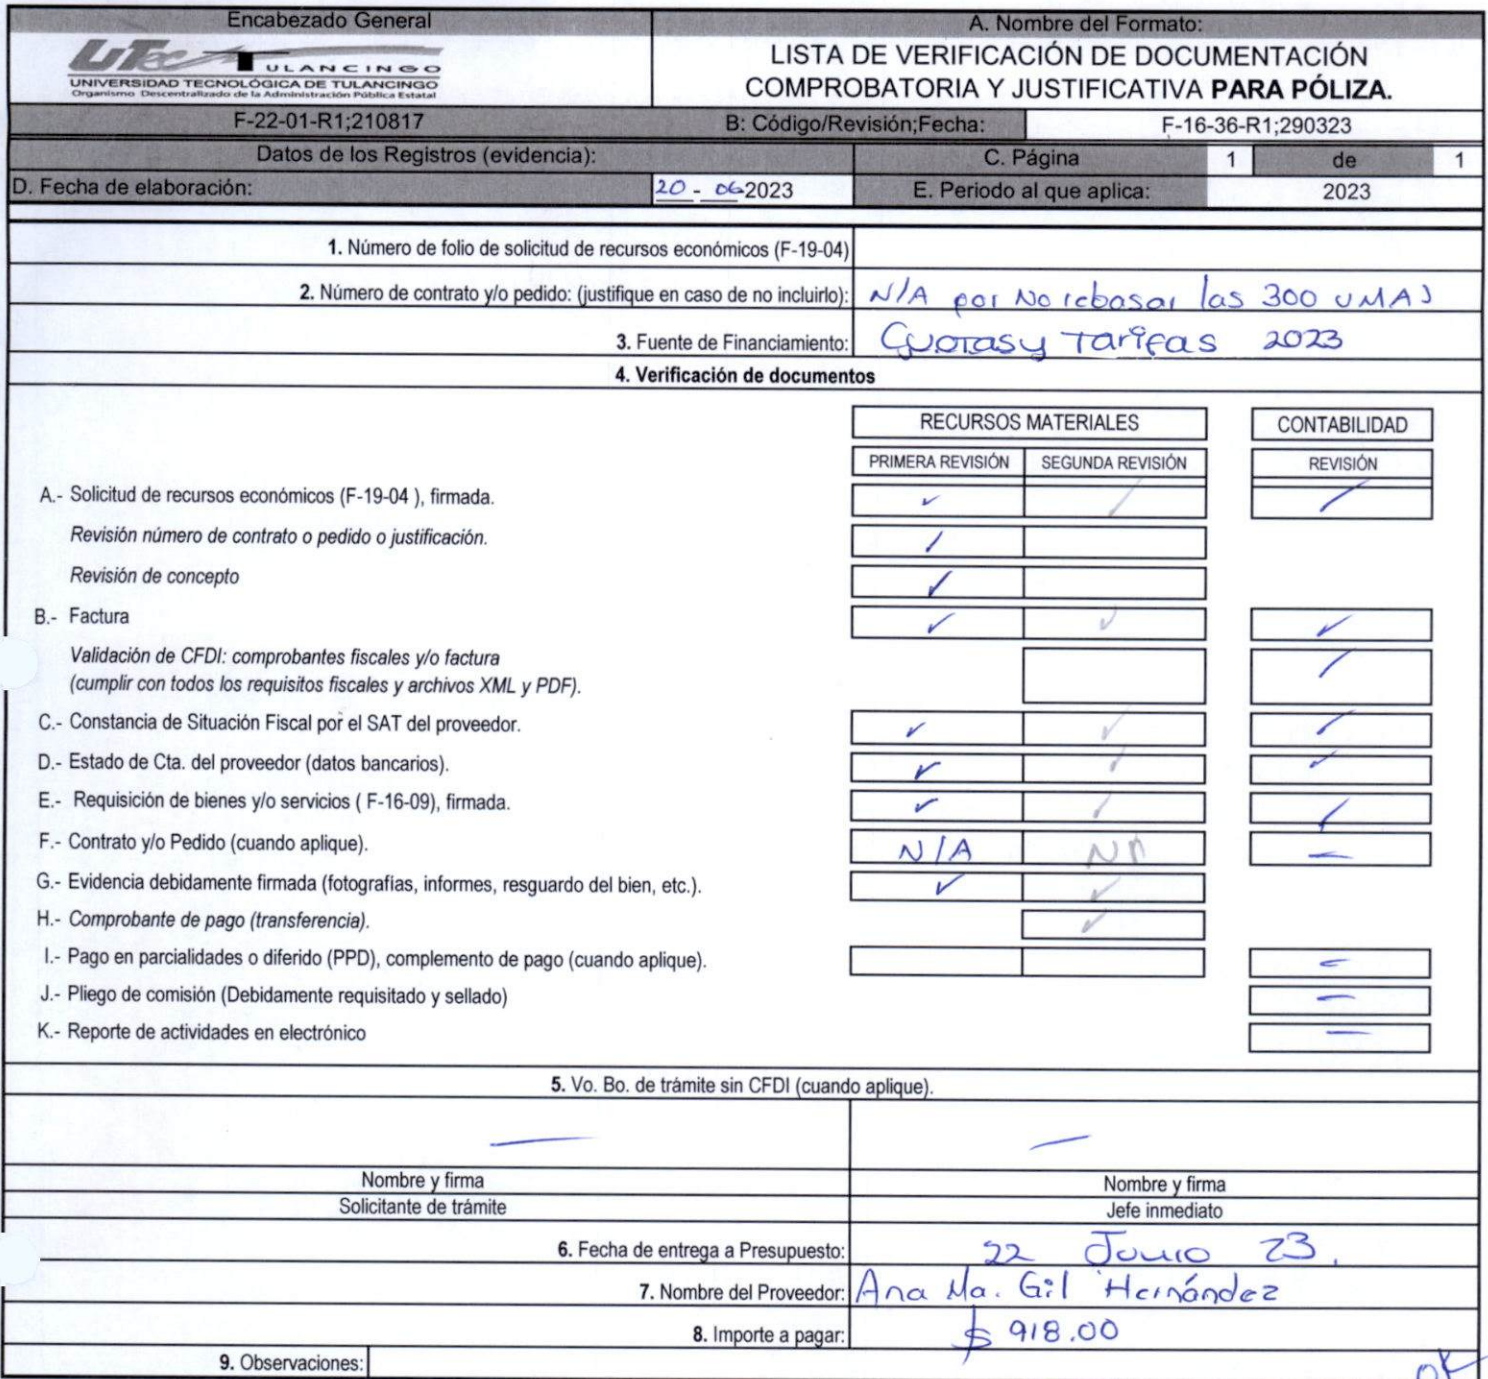 Encabezado General
A. Nombre del Formato:
UTec TULANCINGO
UNIVERSIDAD TECNOLÓGICA DE TULANCINGO
Organismo Descentralizado de la Administración Pública Estatal
LISTA DE VERIFICACIÓN DE DOCUMENTACIÓN
COMPROBATORIA Y JUSTIFICATIVA PARA PÓLIZA.
F-22-01-R1;210817 B: Código/Revisión;Fecha: F-16-36-R1;290323
Datos de los Registros (evidencia): C. Página 1 de 1
D. Fecha de elaboración: 20 - 06-2023 E. Periodo al que aplica: 2023
1. Número de folio de solicitud de recursos económicos (F-19-04)
2. Número de contrato y/o pedido: (justifique en caso de no incluirlo): N/A por No rebasar las 300 UMAS
3. Fuente de Financiamiento: Cuotas y Tarifas 2023
4. Verificación de documentos
RECURSOS MATERIALES CONTABILIDAD
PRIMERA REVISIÓN SEGUNDA REVISIÓN REVISIÓN
A.- Solicitud de recursos económicos (F-19-04 ), firmada. ✓ ✓ ✓
Revisión número de contrato o pedido o justificación. ✓
Revisión de concepto ✓
B.- Factura ✓ ✓ ✓
Validación de CFDI: comprobantes fiscales y/o factura
(cumplir con todos los requisitos fiscales y archivos XML y PDF). ✓
C.- Constancia de Situación Fiscal por el SAT del proveedor. ✓ ✓ ✓
D.- Estado de Cta. del proveedor (datos bancarios). ✓ ✓ ✓
E.- Requisición de bienes y/o servicios ( F-16-09), firmada. ✓ ✓ ✓
F.- Contrato y/o Pedido (cuando aplique). N/A NA —
G.- Evidencia debidamente firmada (fotografías, informes, resguardo del bien, etc.). ✓ ✓
H.- Comprobante de pago (transferencia). ✓
I.- Pago en parcialidades o diferido (PPD), complemento de pago (cuando aplique). —
J.- Pliego de comisión (Debidamente requisitado y sellado) —
K.- Reporte de actividades en electrónico —
5. Vo. Bo. de trámite sin CFDI (cuando aplique).
— —
Nombre y firma Nombre y firma
Solicitante de trámite Jefe inmediato
6. Fecha de entrega a Presupuesto: 22 Junio 23.
7. Nombre del Proveedor: Ana Ma. Gil Hernández
8. Importe a pagar: $ 918.00
9. Observaciones:
OK